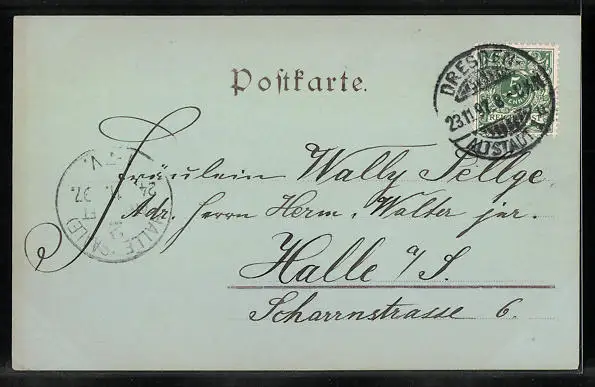 Postkarte.
DRESDEN-
23.11.97. 8-
ALTSTADT 1.
Fräulein Wally Sellge
Adr. Herrn Herm. Walter jr.
Halle a/S.
Scharrnstrasse 6.
HALLE (SAALE)
24
97.
V.